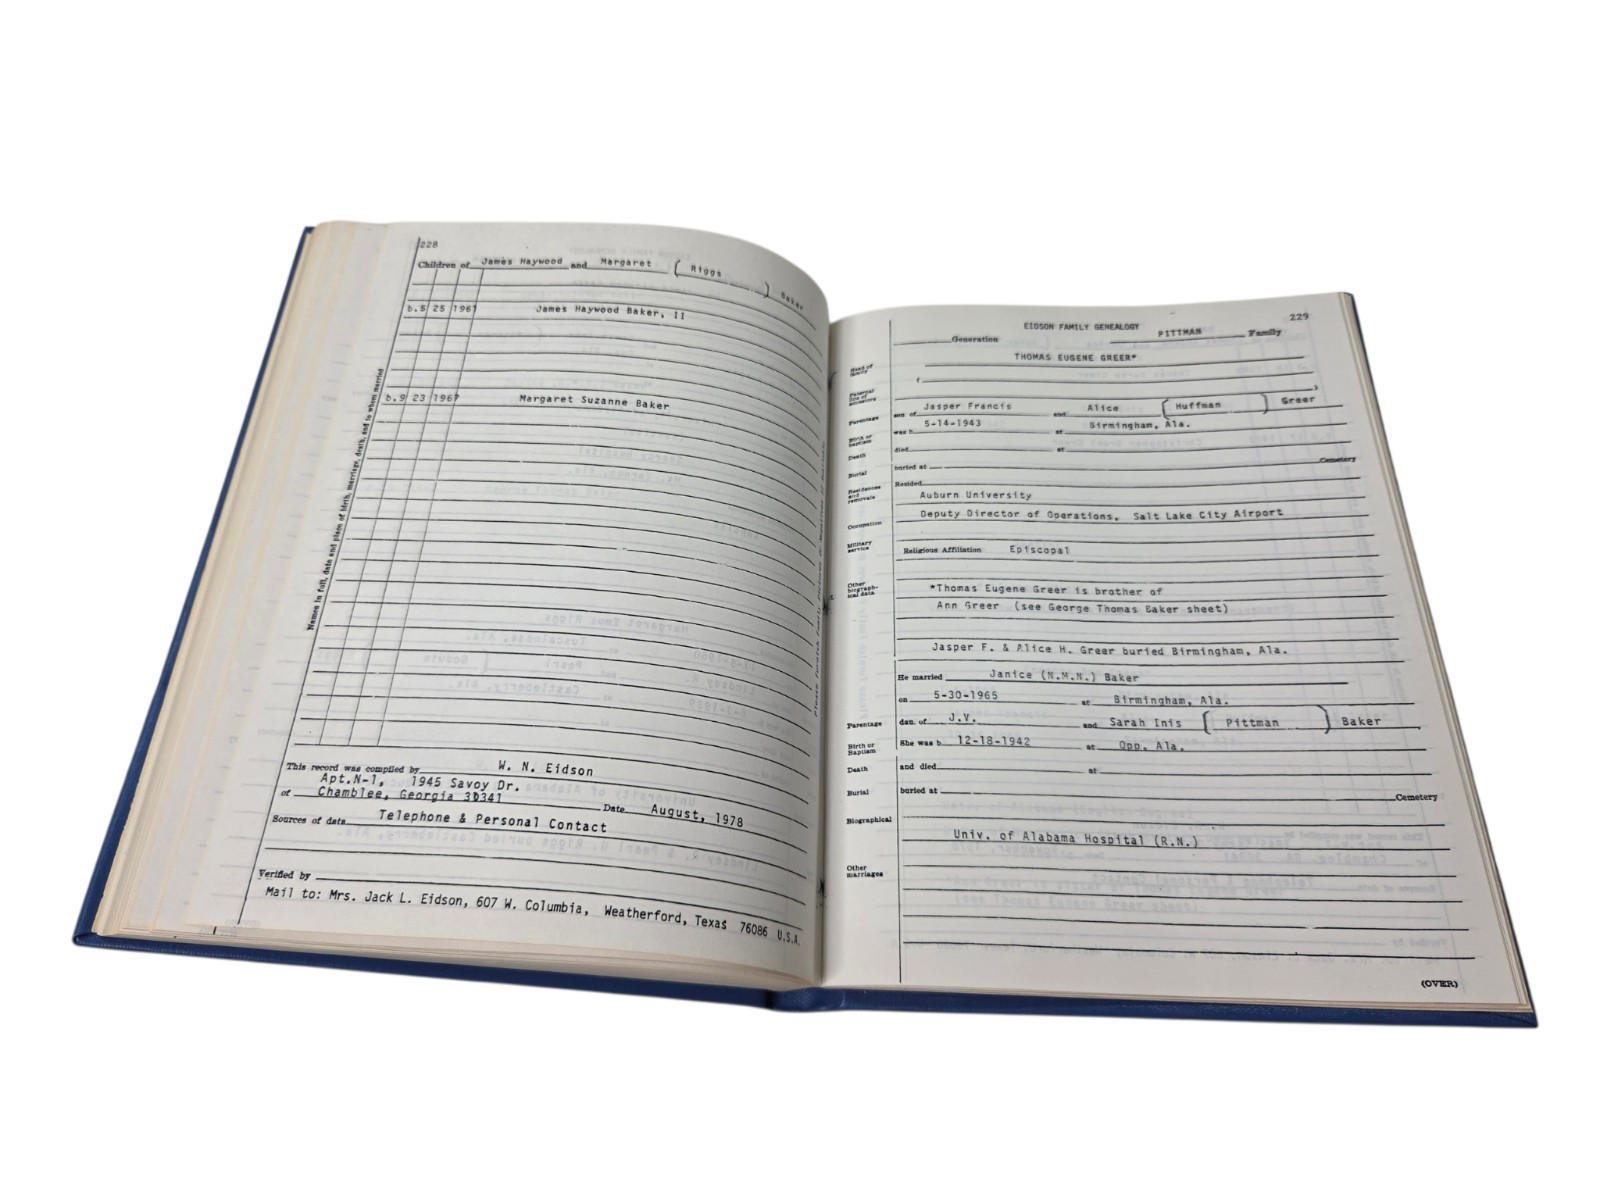 228
Children of James Haywood and Margaret ( Riggs ) Baker
b.5 25 1961 James Haywood Baker, II
b.9 23 1967 Margaret Suzanne Baker
Names in full, date and place of birth, marriage, death, and to whom married
This record was compiled by W. N. Eidson
Apt.N-1, 1945 Savoy Dr.
of Chamblee, Georgia 30341 Date August, 1978
Sources of data Telephone & Personal Contact
Verified by
Mail to: Mrs. Jack L. Eidson, 607 W. Columbia, Weatherford, Texas 76086 U.S.A.
229
EIDSON FAMILY GENEALOGY
Generation PITTMAN Family
Head of family THOMAS EUGENE GREER*
Paternal line of ancestors ( )
Parentage son of Jasper Francis and Alice ( Huffman ) Greer
Birth or baptism was b. 5-14-1943 at Birmingham, Ala.
Death died at
Burial buried at Cemetery
Residences and removals Resided
Auburn University
Occupation Deputy Director of Operations, Salt Lake City Airport
Military service Religious Affiliation Episcopal
Other biographical data *Thomas Eugene Greer is brother of
Ann Greer (see George Thomas Baker sheet)
Jasper F. & Alice H. Greer buried Birmingham, Ala.
He married Janice (N.M.N.) Baker
on 5-30-1965 at Birmingham, Ala.
Parentage dau. of J.V. and Sarah Inis ( Pittman ) Baker
Birth or Baptism She was b. 12-18-1942 at Opp, Ala.
Death and died at
Burial buried at Cemetery
Biographical
Univ. of Alabama Hospital (R.N.)
Other marriages
(OVER)